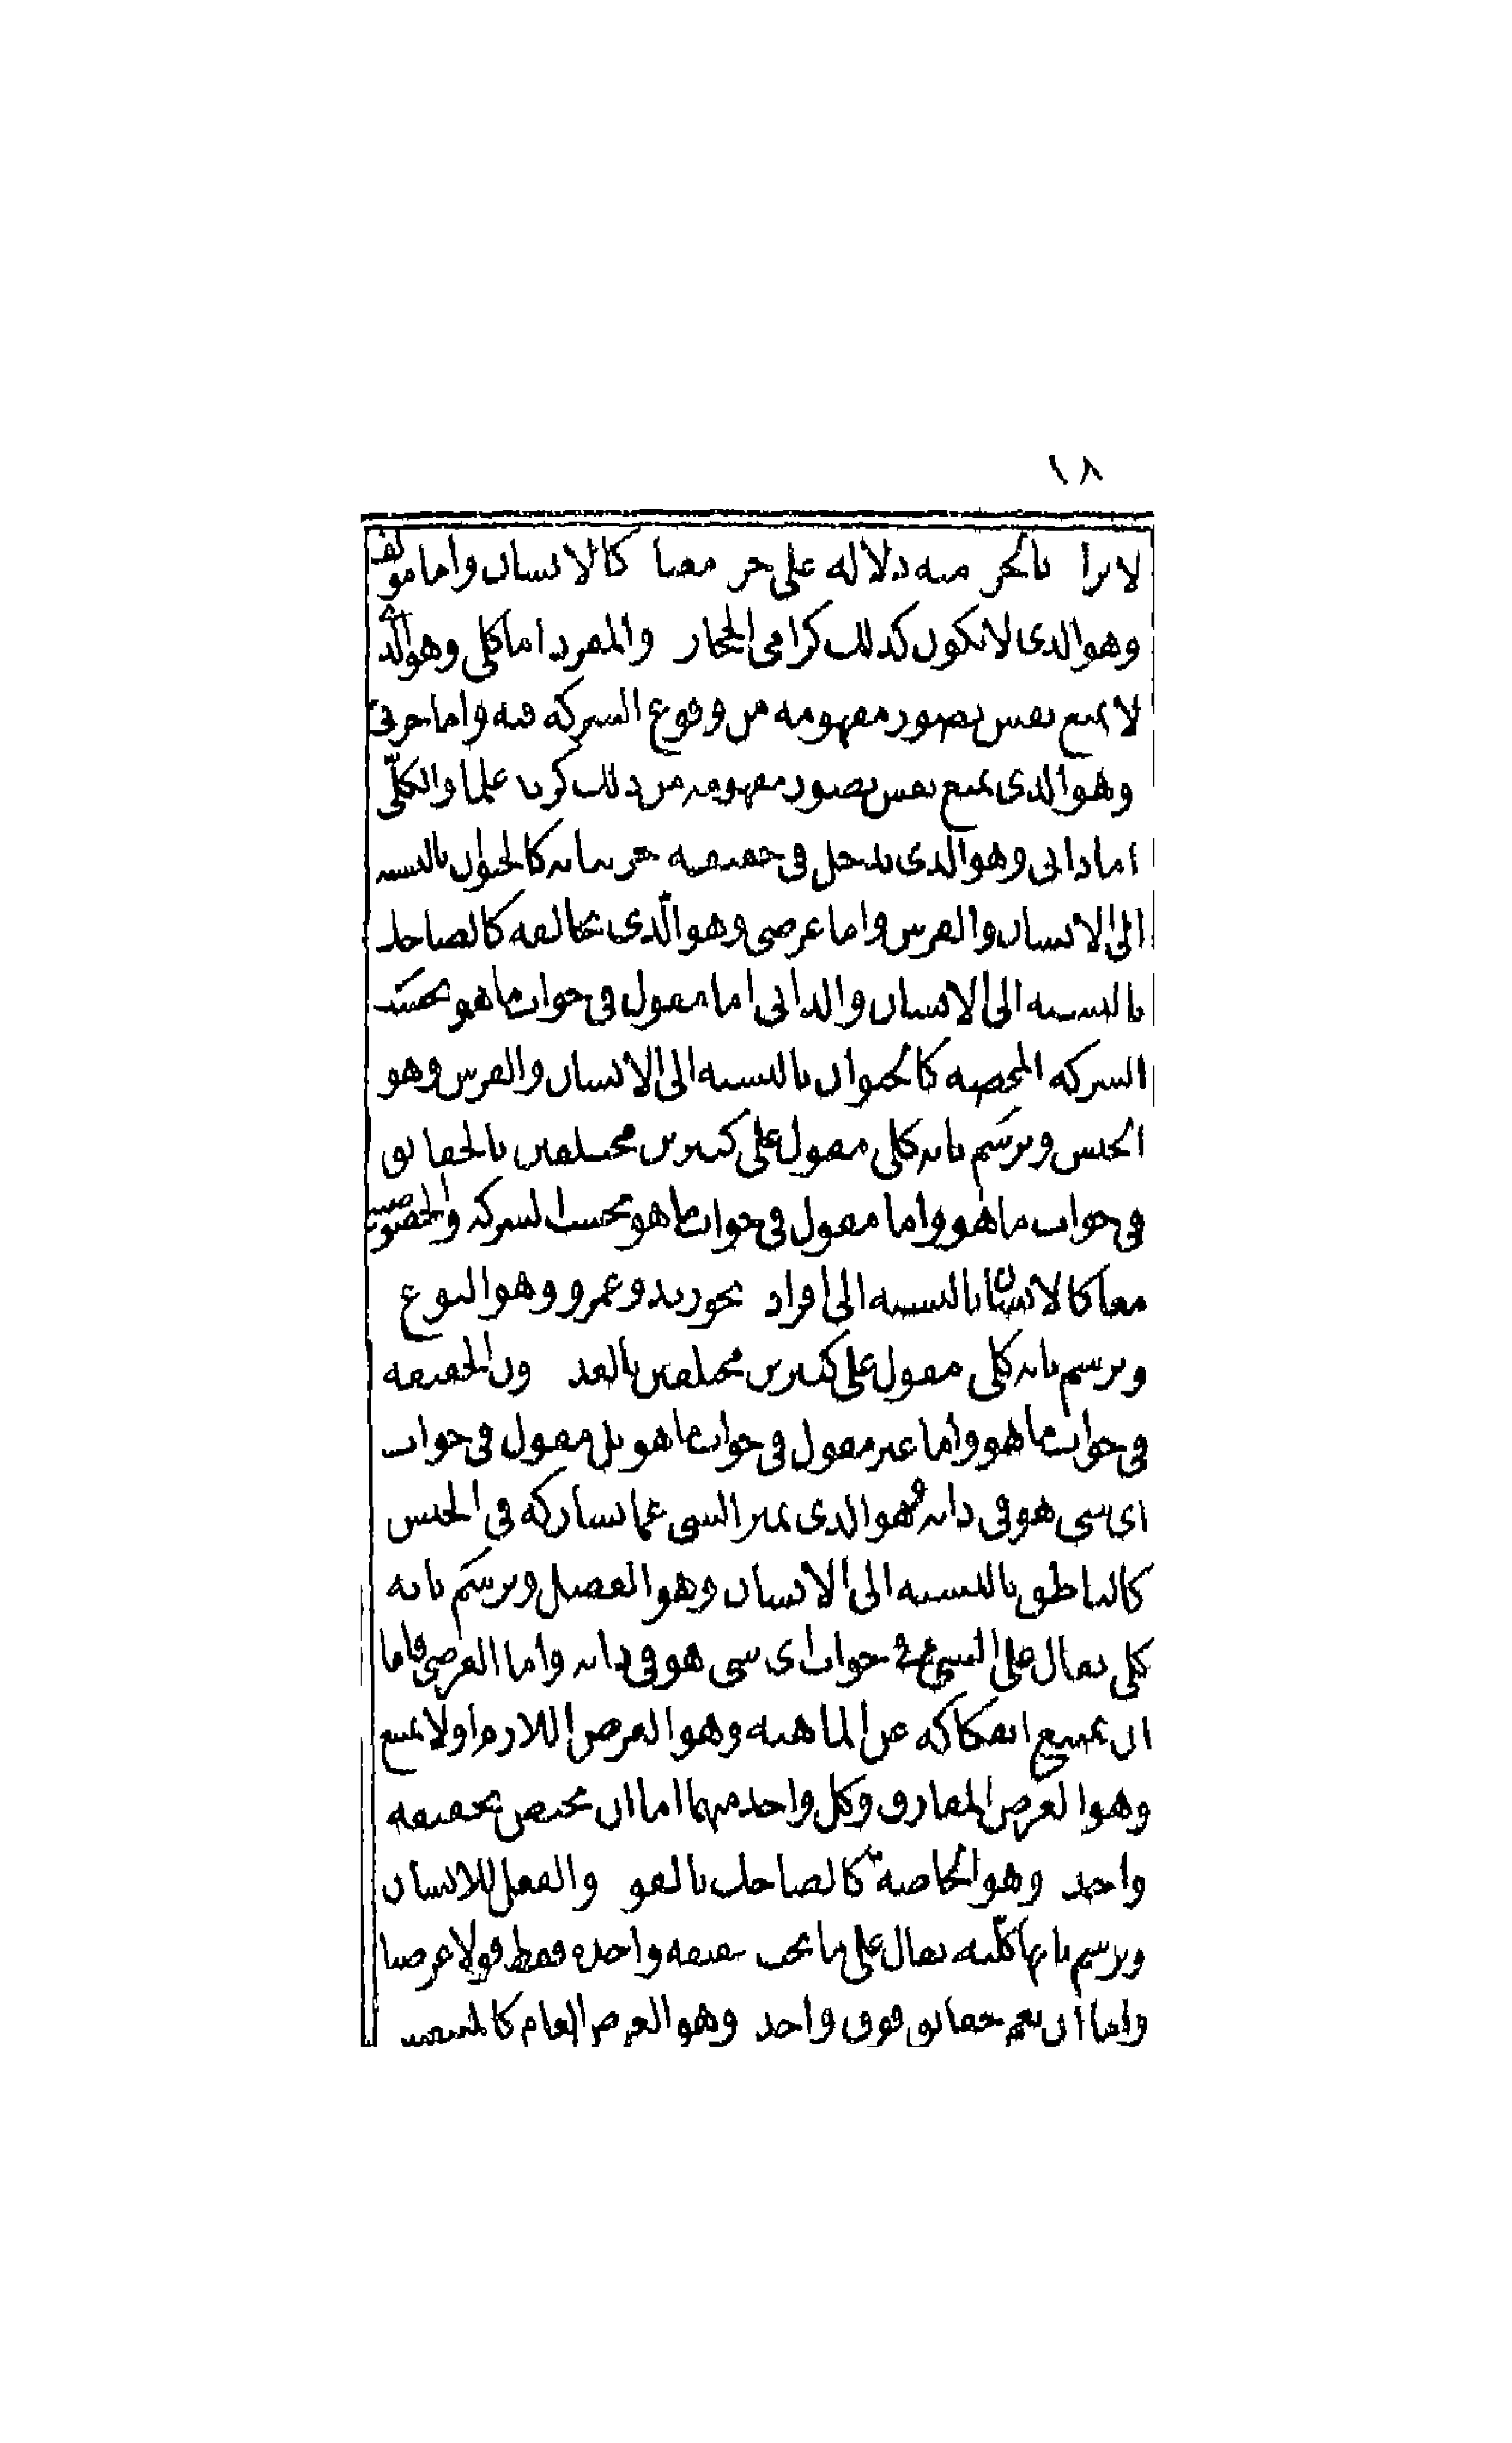 ١٨
لا يراد بالجزء منه دلالة على جزء معناه كالانسان واما مولف
وهو الذى لا يكون كذلك كرامى الحجارة والمفرد اما كلى وهو الذى
لا يمنع نفس تصور مفهومه من وقوع الشركة فيه واما جزئى
وهو الذى يمنع نفس تصور مفهومه من ذلك كزيد علما والكلّى
اما ذاتى وهو الذى يدخل فى حقيقة جزئياته كالحيوان بالنسبة
الى الانسان والفرس واما عرضى وهو الّذى يخالفه كالضاحك
بالنسبة الى الانسان والذاتى اما مقول فى جواب ما هو بحسب
الشركة المحضة كالحيوان بالنسبة الى الانسان والفرس وهو
الجنس ويرسم بانه كلى مقول على كثيرين مختلفين بالحقايق
فى جواب ما هو واما مقول فى جواب ما هو بحسب الشركة والخصوصية
معا كالانسان بالنسبة الى افراده نحو زيد وعمرو وهو النوع
ويرسم بانه كلى مقول على كثيرين مختلفين بالعدد دون الحقيقة
فى جواب ما هو واما غير مقول فى جواب ما هو بل مقول فى جواب
اى شى هو فى ذاته وهو الذى يميز الشى عما يشاركه فى الجنس
كالناطق بالنسبة الى الانسان وهو الفصل ويرسم بانه
كلى يقال على الشىء فى جواب اى شى هو فى ذاته واما العرضى فاما
ان يمتنع انفكاكه عن الماهية وهو العرض اللازم او لا يمتنع
وهو العرض المفارق وكل واحد منهما اما ان يختص بحقيقة
واحدة وهو الخاصة كالضاحك بالقوة والفعل للانسان
ويرسم بانها كلّية يقال على ما تحت حقيقة واحدة فقط قولا عرضيا
واما ان يعم حقايق فوق واحدة وهو العرض العام كالمتنفس